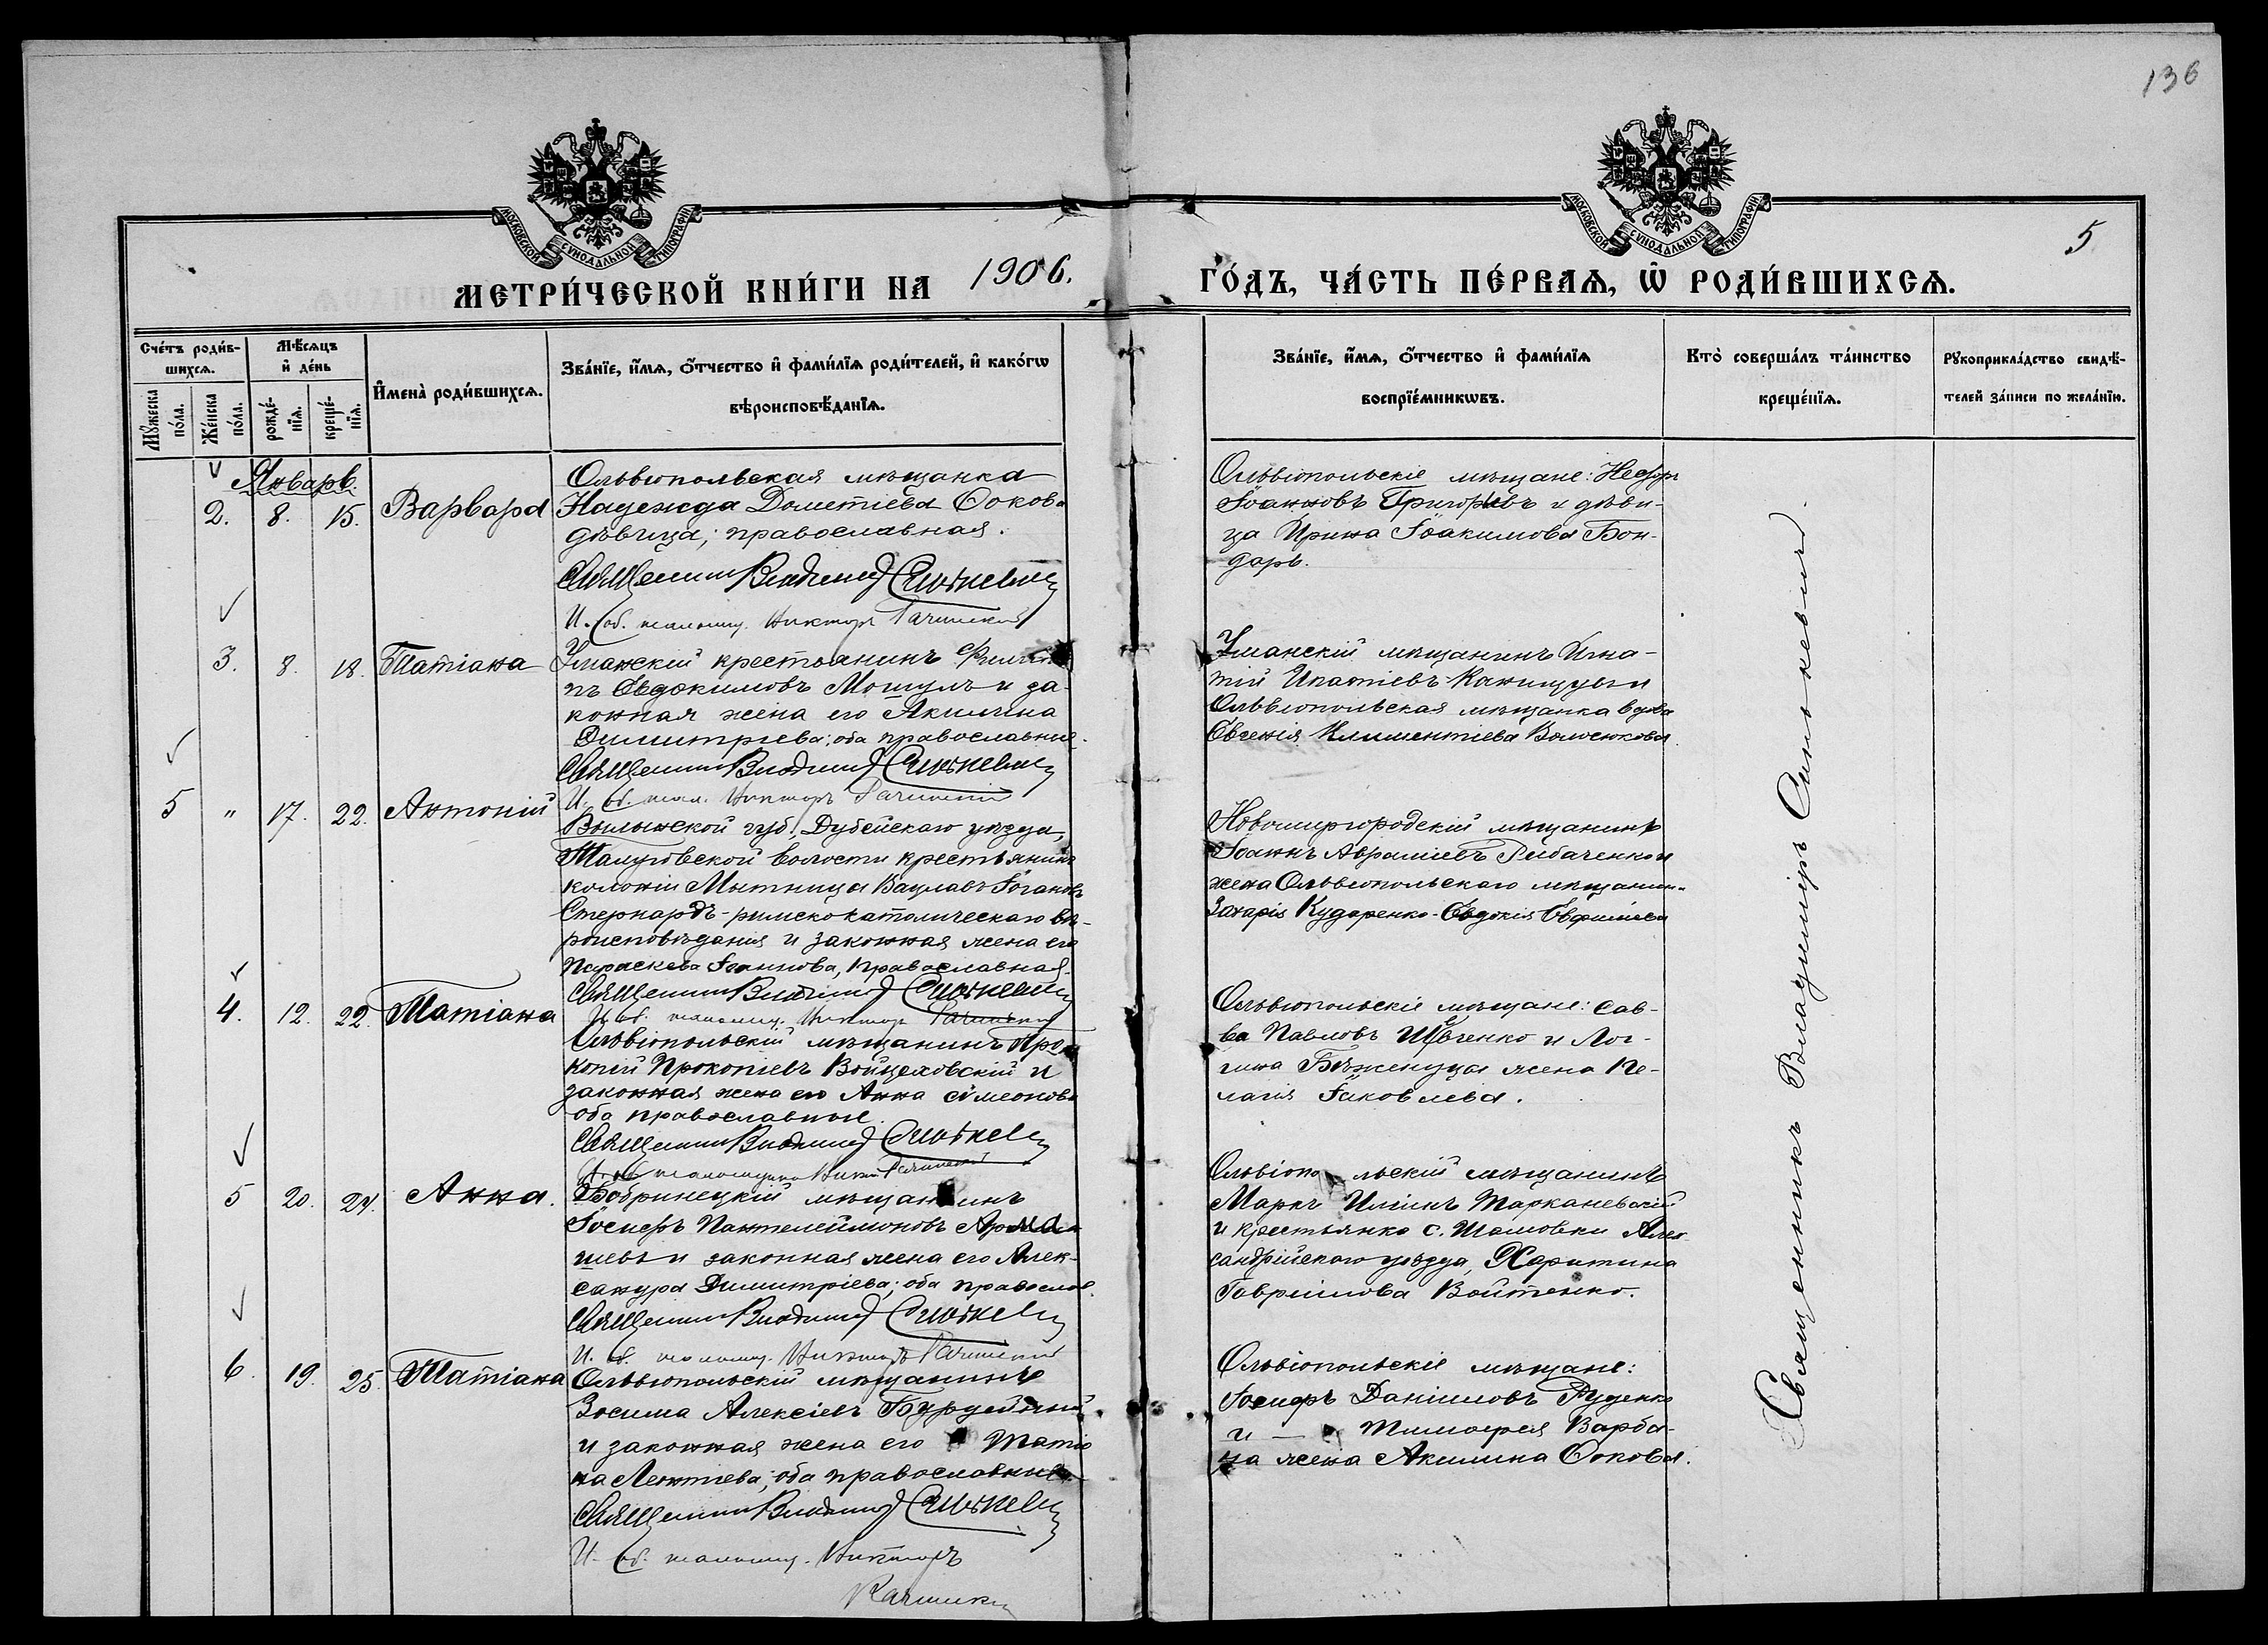 136
МОСКОВСКОЙ СѴНОДАЛЬНОЙ ТИПОГРАФІИ
МОСКОВСКОЙ СѴНОДАЛЬНОЙ ТИПОГРАФІИ
5
МЕТРИ́ЧЕСКОЙ КНИ́ГИ НА 1906. ГО́ДЪ, ЧА́СТЬ ПЕ́РВАѦ, Ѡ҆ РОДИ́ВШИХСѦ.
Сче́тъ роди́в-
шихсѧ.
Мꙋ́жеска по́ла.
Же́нска по́ла.
Мѣ́сѧцъ
и҆ де́нь
рожде́-
нїѧ.
креще́-
нїѧ.
И҆мена̀ роди́вшихсѧ.
Зва́нїе, и҆́мѧ, ѻ҆́тчество и҆ фами́лїѧ роди́телей, и҆ како́гѡ
вѣроисповѣ́данїѧ.
Зва́нїе, и҆́мѧ, ѻ҆́тчество и҆ фами́лїѧ
воспрїе́мникѡвъ.
Кто̀ соверша́лъ та́инство
креще́нїѧ.
Рꙋкоприкла́дство свидѣ́-
телей за́писи по жела́нїю.
Январь.
2. 8. 15. Варвара
Ольвіопольская мѣщанка
Надежда Дометіева Сокова
дѣвица; православная.
Священникъ Владиміръ Синькевичъ
И. об. псаломщ. Викторъ Рачинскій
Ольвіопольскіе мѣщане:
Іоанновъ Григорьевъ и дѣви-
ца Ирина Іоакимова Бон-
дарь.
3. 8. 18. Татіана
Уманскій крестьянинъ Филип-
пъ Евдокимовъ Мошулъ и за-
конная жена его Акилина
Димитріева; оба православные.
Священникъ Владиміръ Синькевичъ
И. об. псал. Викторъ Рачинскій
Уманскій мѣщанинъ Игна-
тій Ипатіевъ и
Ольвіопольская мѣщанка вдова
Евгенія Климентіева Волосюкова.
5 " 17. 22. Антоній
Волынской губ. Дубенскаго уѣзда,
волости крестьянинъ
колоніи Мытница Вацлавъ
римско католическаго вѣ-
роисповѣданія и законная жена его
Параскева Іоаннова, православная.
Священникъ Владиміръ Синькевичъ
И. об. псаломщ. Викторъ Рачинскій
Новомиргородскій мѣщанинъ
Іоаннъ Авраміевъ Рибаченко и
жена Ольвіопольскаго мѣщанин.
Захарія Кударенко - Евдокія Евфиміева
4. 12. 22. Татіана
Ольвіопольскій мѣщанинъ Про-
копій Прокопіевъ Войцеховскій и
законная жена его Анна Симеонова
оба православные
Священникъ Владиміръ Синькевичъ
И. об. псаломщика Викт. Рачинскій
Ольвіопольскіе мѣщане: Сав-
ва Павловъ Шевченко и Лог-
гина Бѣженуца жена Пе-
лагія Іаковлева.
5 20. 24. Анна.
Бобринецкій мѣщанинъ
Іосифъ Пантелеимоновъ
шевъ и законная жена его Алек-
сандра Димитріева; оба правосл.
Священникъ Владиміръ Синькевичъ
И. об. псаломщ. Викторъ Рачинскій
Ольвіопольскій мѣщанинъ
Маркъ Иліинъ Тарканевскій
и крестьянка с. Шамовки Алек-
сандрійскаго уѣзда, Харитина
Гавриилова Войтенко.
6. 19. 25. Татіана
Ольвіопольскій мѣщанинъ
Зосима Алексіевъ
и законная жена его Татіа
на Леонтіева; оба православные
Священникъ Владиміръ Синькевичъ
И. об. псаломщ. Викторъ
Рачинскій
Ольвіопольскіе мѣщане:
Іосифъ Даніиловъ Руденко
и — Тимофея Варба-
ца жена Акилина Сокова.
Священникъ Владиміръ Синькевичъ.